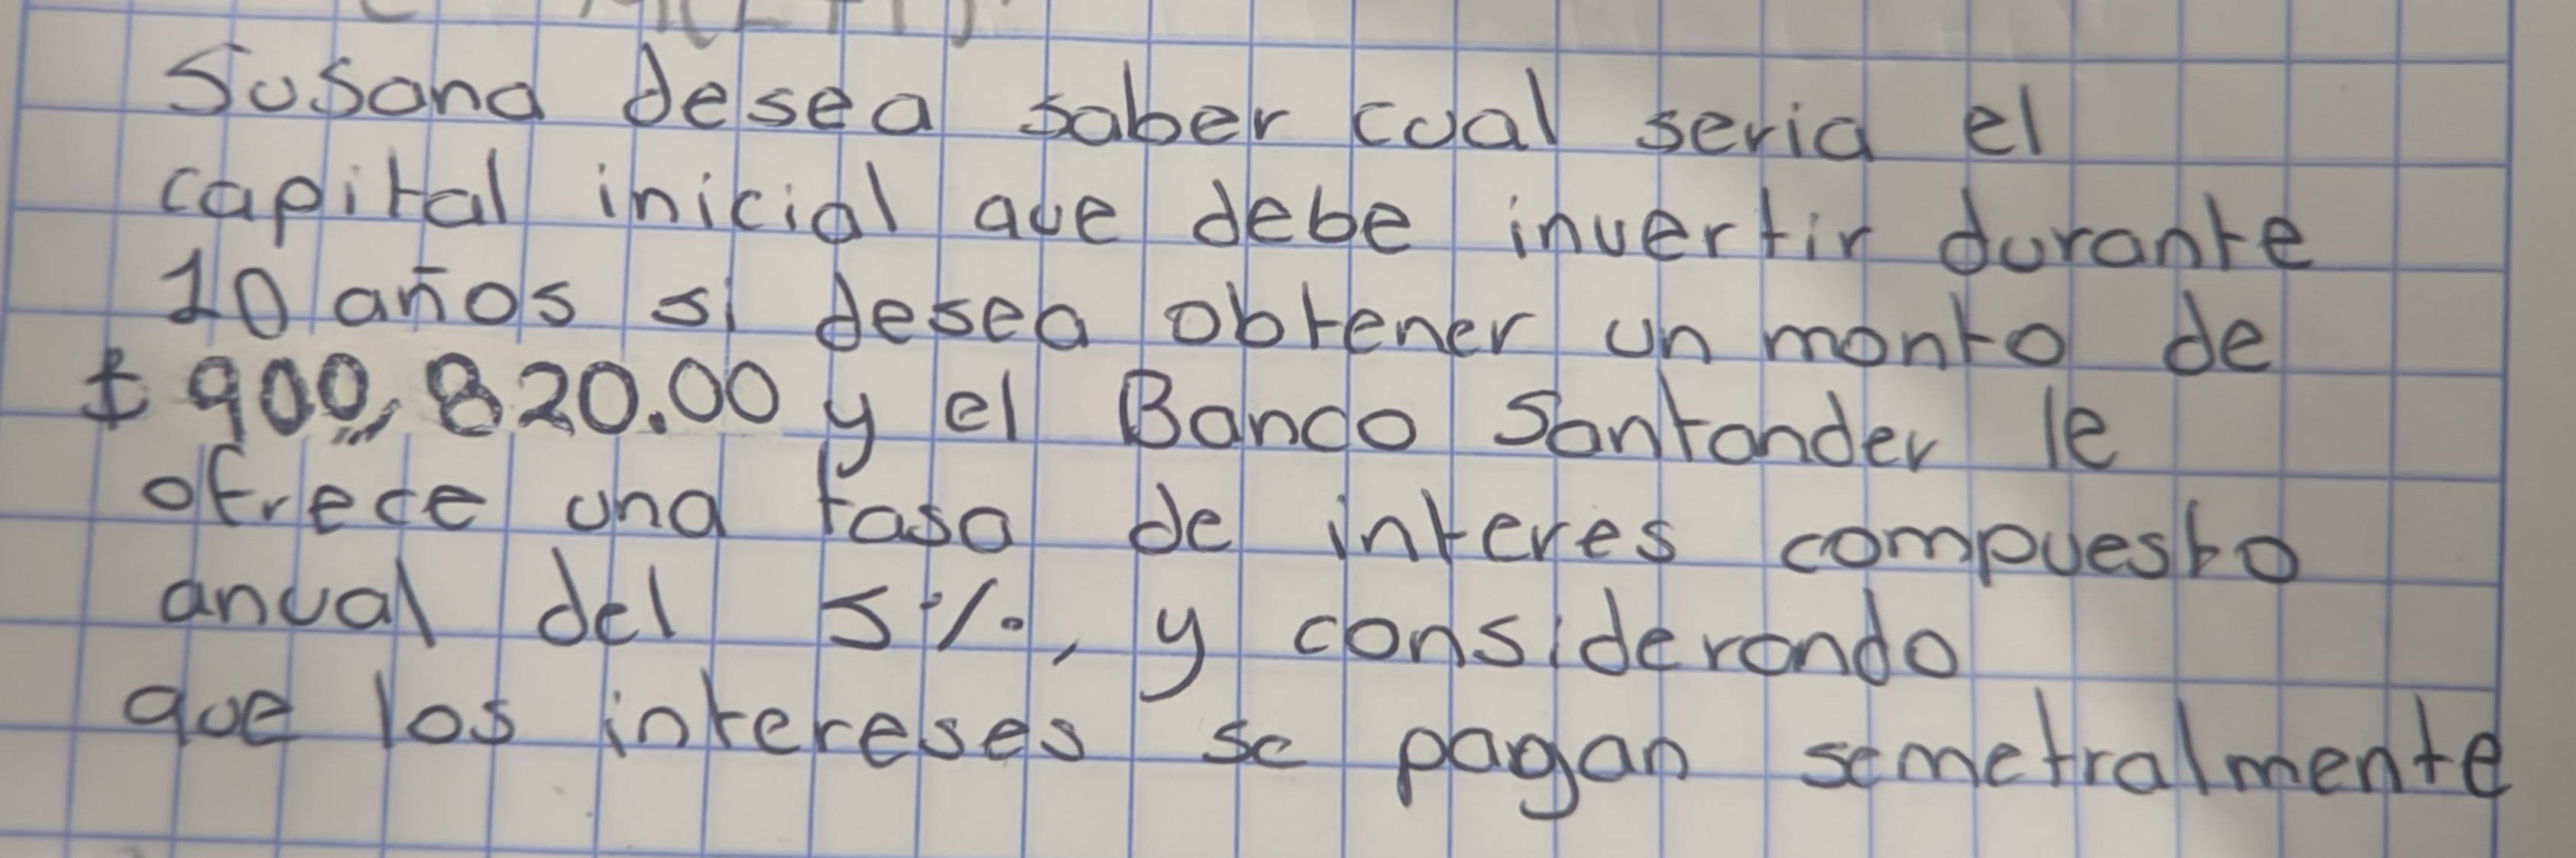 Susana desea saber cual seria el
capital inicial que debe invertir durante
10 años si desea obtener un monto de
$900,820.00 y el Banco Santander le
ofrece una tasa de interes compuesto
anual del 5%, y considerando
que los intereses se pagan semetralmente